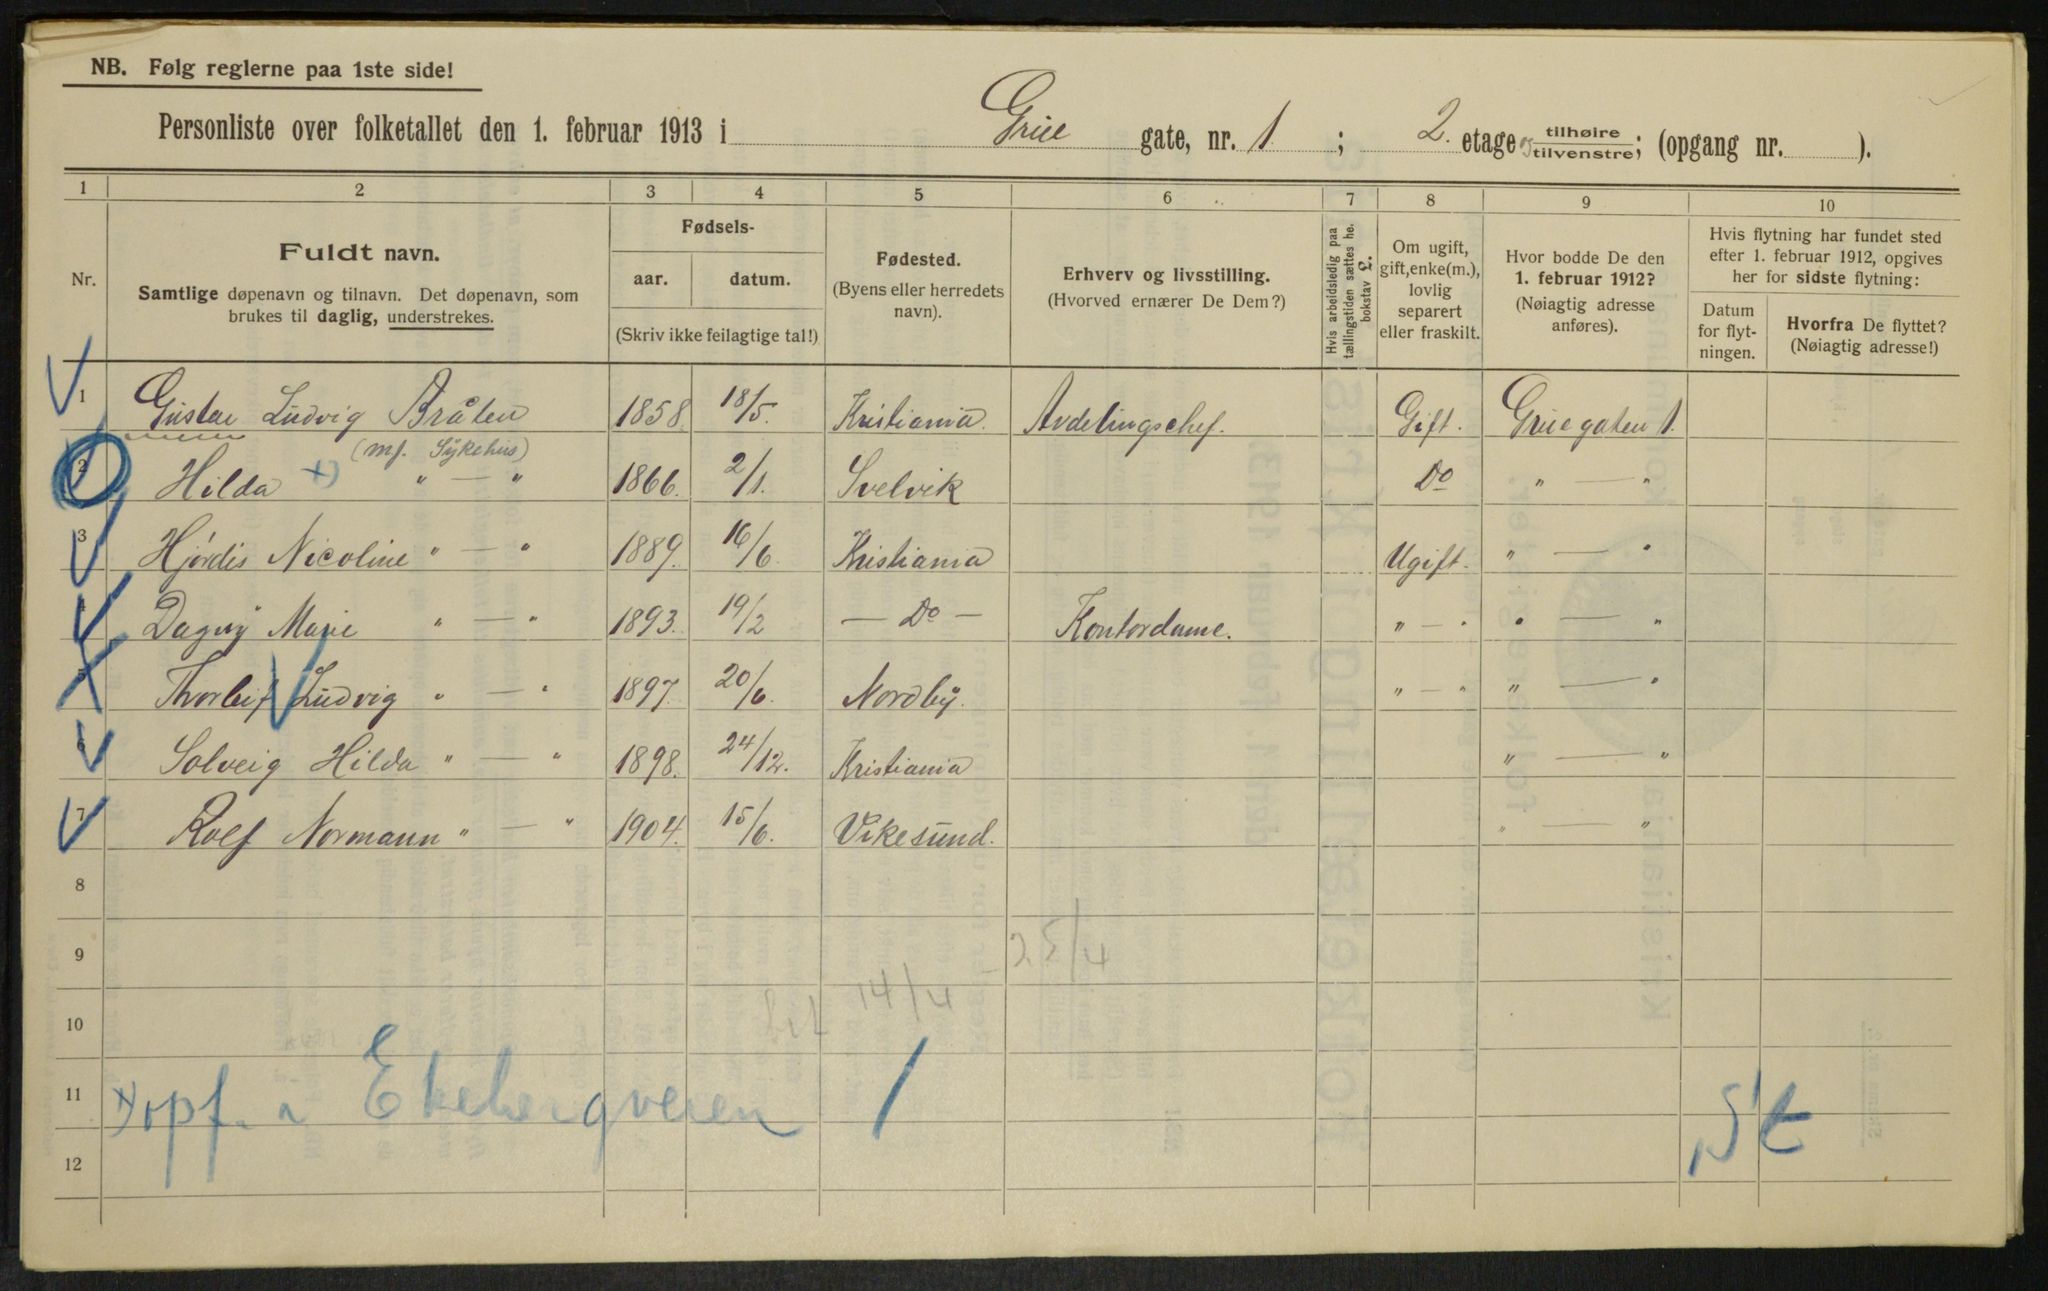 NB. Følg reglerne paa 1ste side!
Personliste over folketallet den 1. februar 1913 i Grüe gate, nr. 1 ; 2. etage tilhøire tilvenstre; (opgang nr. ).
1 2 3 4 5 6 7 8 9 10
Nr.
Fuldt navn.
Samtlige døpenavn og tilnavn. Det døpenavn, som
brukes til daglig, understrekes.
Fødsels-
aar. datum.
(Skriv ikke feilagtige tal!)
Fødested.
(Byens eller herredets
navn).
Erhverv og livsstilling.
(Hvorved ernærer De Dem?)
Hvis arbeidsledig paa
tællingstiden sættes he.
bokstav L.
Om ugift,
gift, enke(m.),
lovlig
separert
eller fraskilt.
Hvor bodde De den
1. februar 1912?
(Nøiagtig adresse
anføres).
Hvis flytning har fundet sted
efter 1. februar 1912, opgives
her for sidste flytning:
Datum
for flyt-
ningen.
Hvorfra De flyttet?
(Nøiagtig adresse!)
1 Gustav Ludvig Bråten 1858. 18/5. Kristiania. Avdelingschef. Gift. Grüegaten 1.
(mf. Sykehus)
2 Hilda x) " — " 1866. 2/1. Svelvik Do " — "
3 Hjördis Nicoline " — " 1889. 16/6. Kristiania Ugift. " — "
4 Dagny Marie " — " 1893. 19/2 — Do — Kontordame. " — " " — "
5 Thorleif Ludvig " — " 1897. 20/6. Nordby. " — " " — "
6 Solveig Hilda " — " 1898. 24/12. Kristiania " — "
7 Rolf Normann " — " 1904. 15/6. Vikesund. " — "
8
9 25/4
10 14/4
11 x) opf. i Ekebergveien 1
12